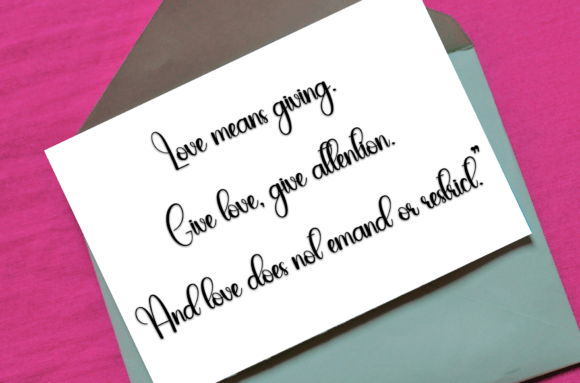 Love means giving.
Give love, give attention.
And love does not emand or restrict."